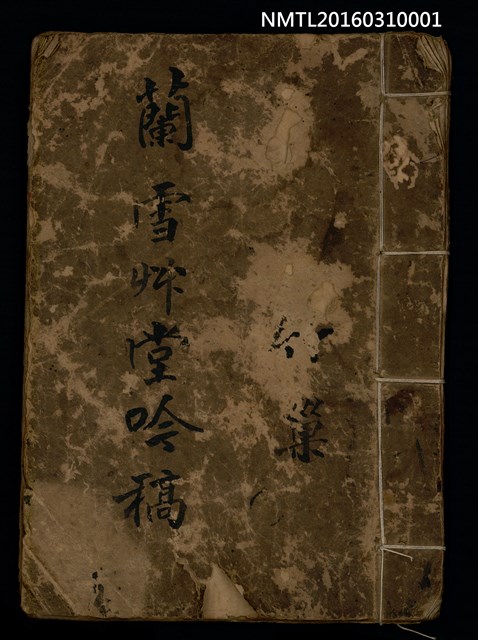 NMTL20160310001
蘭雪艸堂吟稿
竹巢